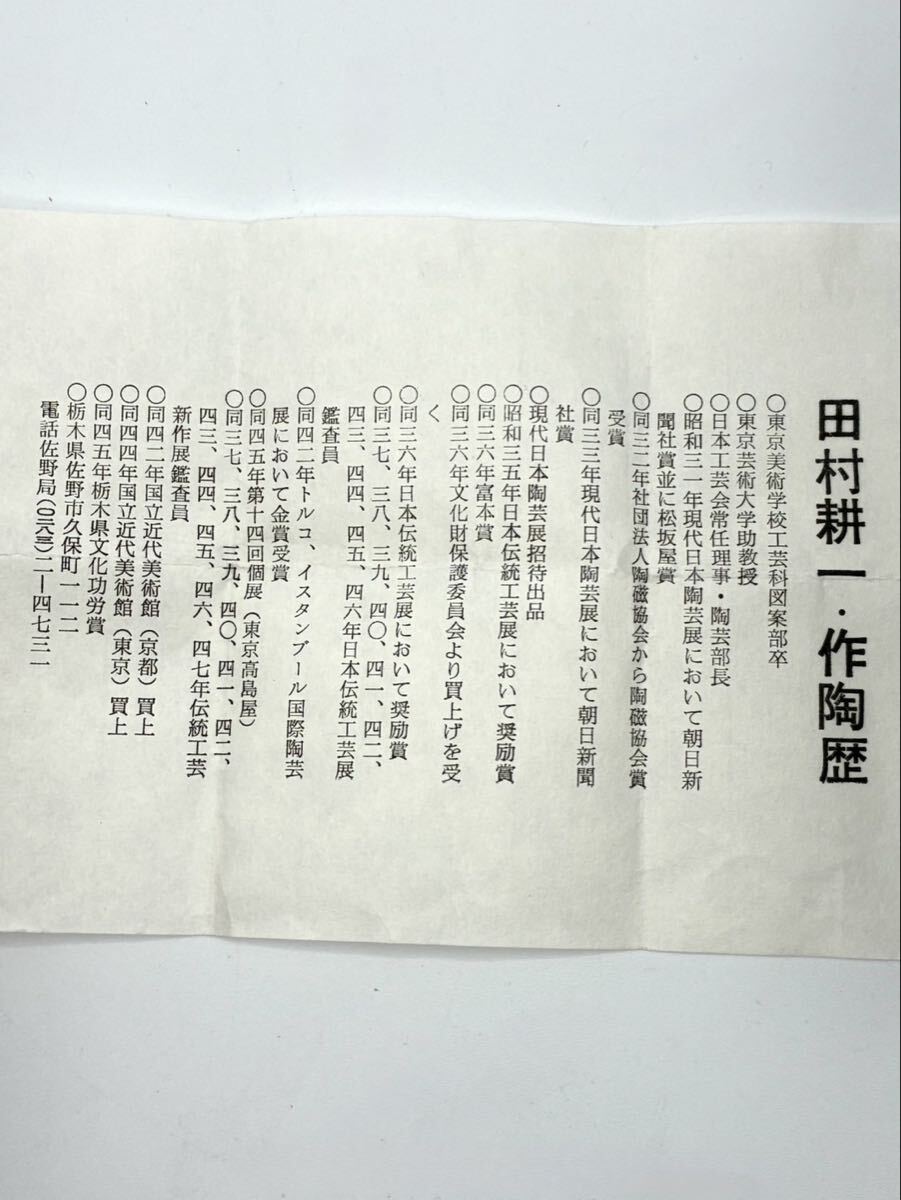 田村耕一・作陶歴
○東京美術学校工芸科図案部卒
○東京芸術大学助教授
○日本工芸会常任理事・陶芸部長
○昭和三一年現代日本陶芸展において朝日新
聞社賞並に松坂屋賞
○同三二年社団法人陶磁協会から陶磁協会賞
受賞
○同三三年現代日本陶芸展において朝日新聞
社賞
○現代日本陶芸展招待出品
○昭和三五年日本伝統工芸展において奨励賞
○同三六年富本賞
○同三六年文化財保護委員会より買上げを受
く
○同三六年日本伝統工芸展において奨励賞
○同三七、三八、三九、四〇、四一、四二、
四三、四四、四五、四六年日本伝統工芸展
鑑査員
○同四二年トルコ、イスタンブール国際陶芸
展において金賞受賞
○同四五年第十四回個展（東京高島屋）
○同三七、三八、三九、四〇、四一、四二、
四三、四四、四五、四六、四七年伝統工芸
新作展鑑査員
○同四二年国立近代美術館（京都）買上
○同四四年国立近代美術館（東京）買上
○同四五年栃木県文化功労賞
○栃木県佐野市久保町一一二
電話佐野局(〇二八三)二ー四七三一